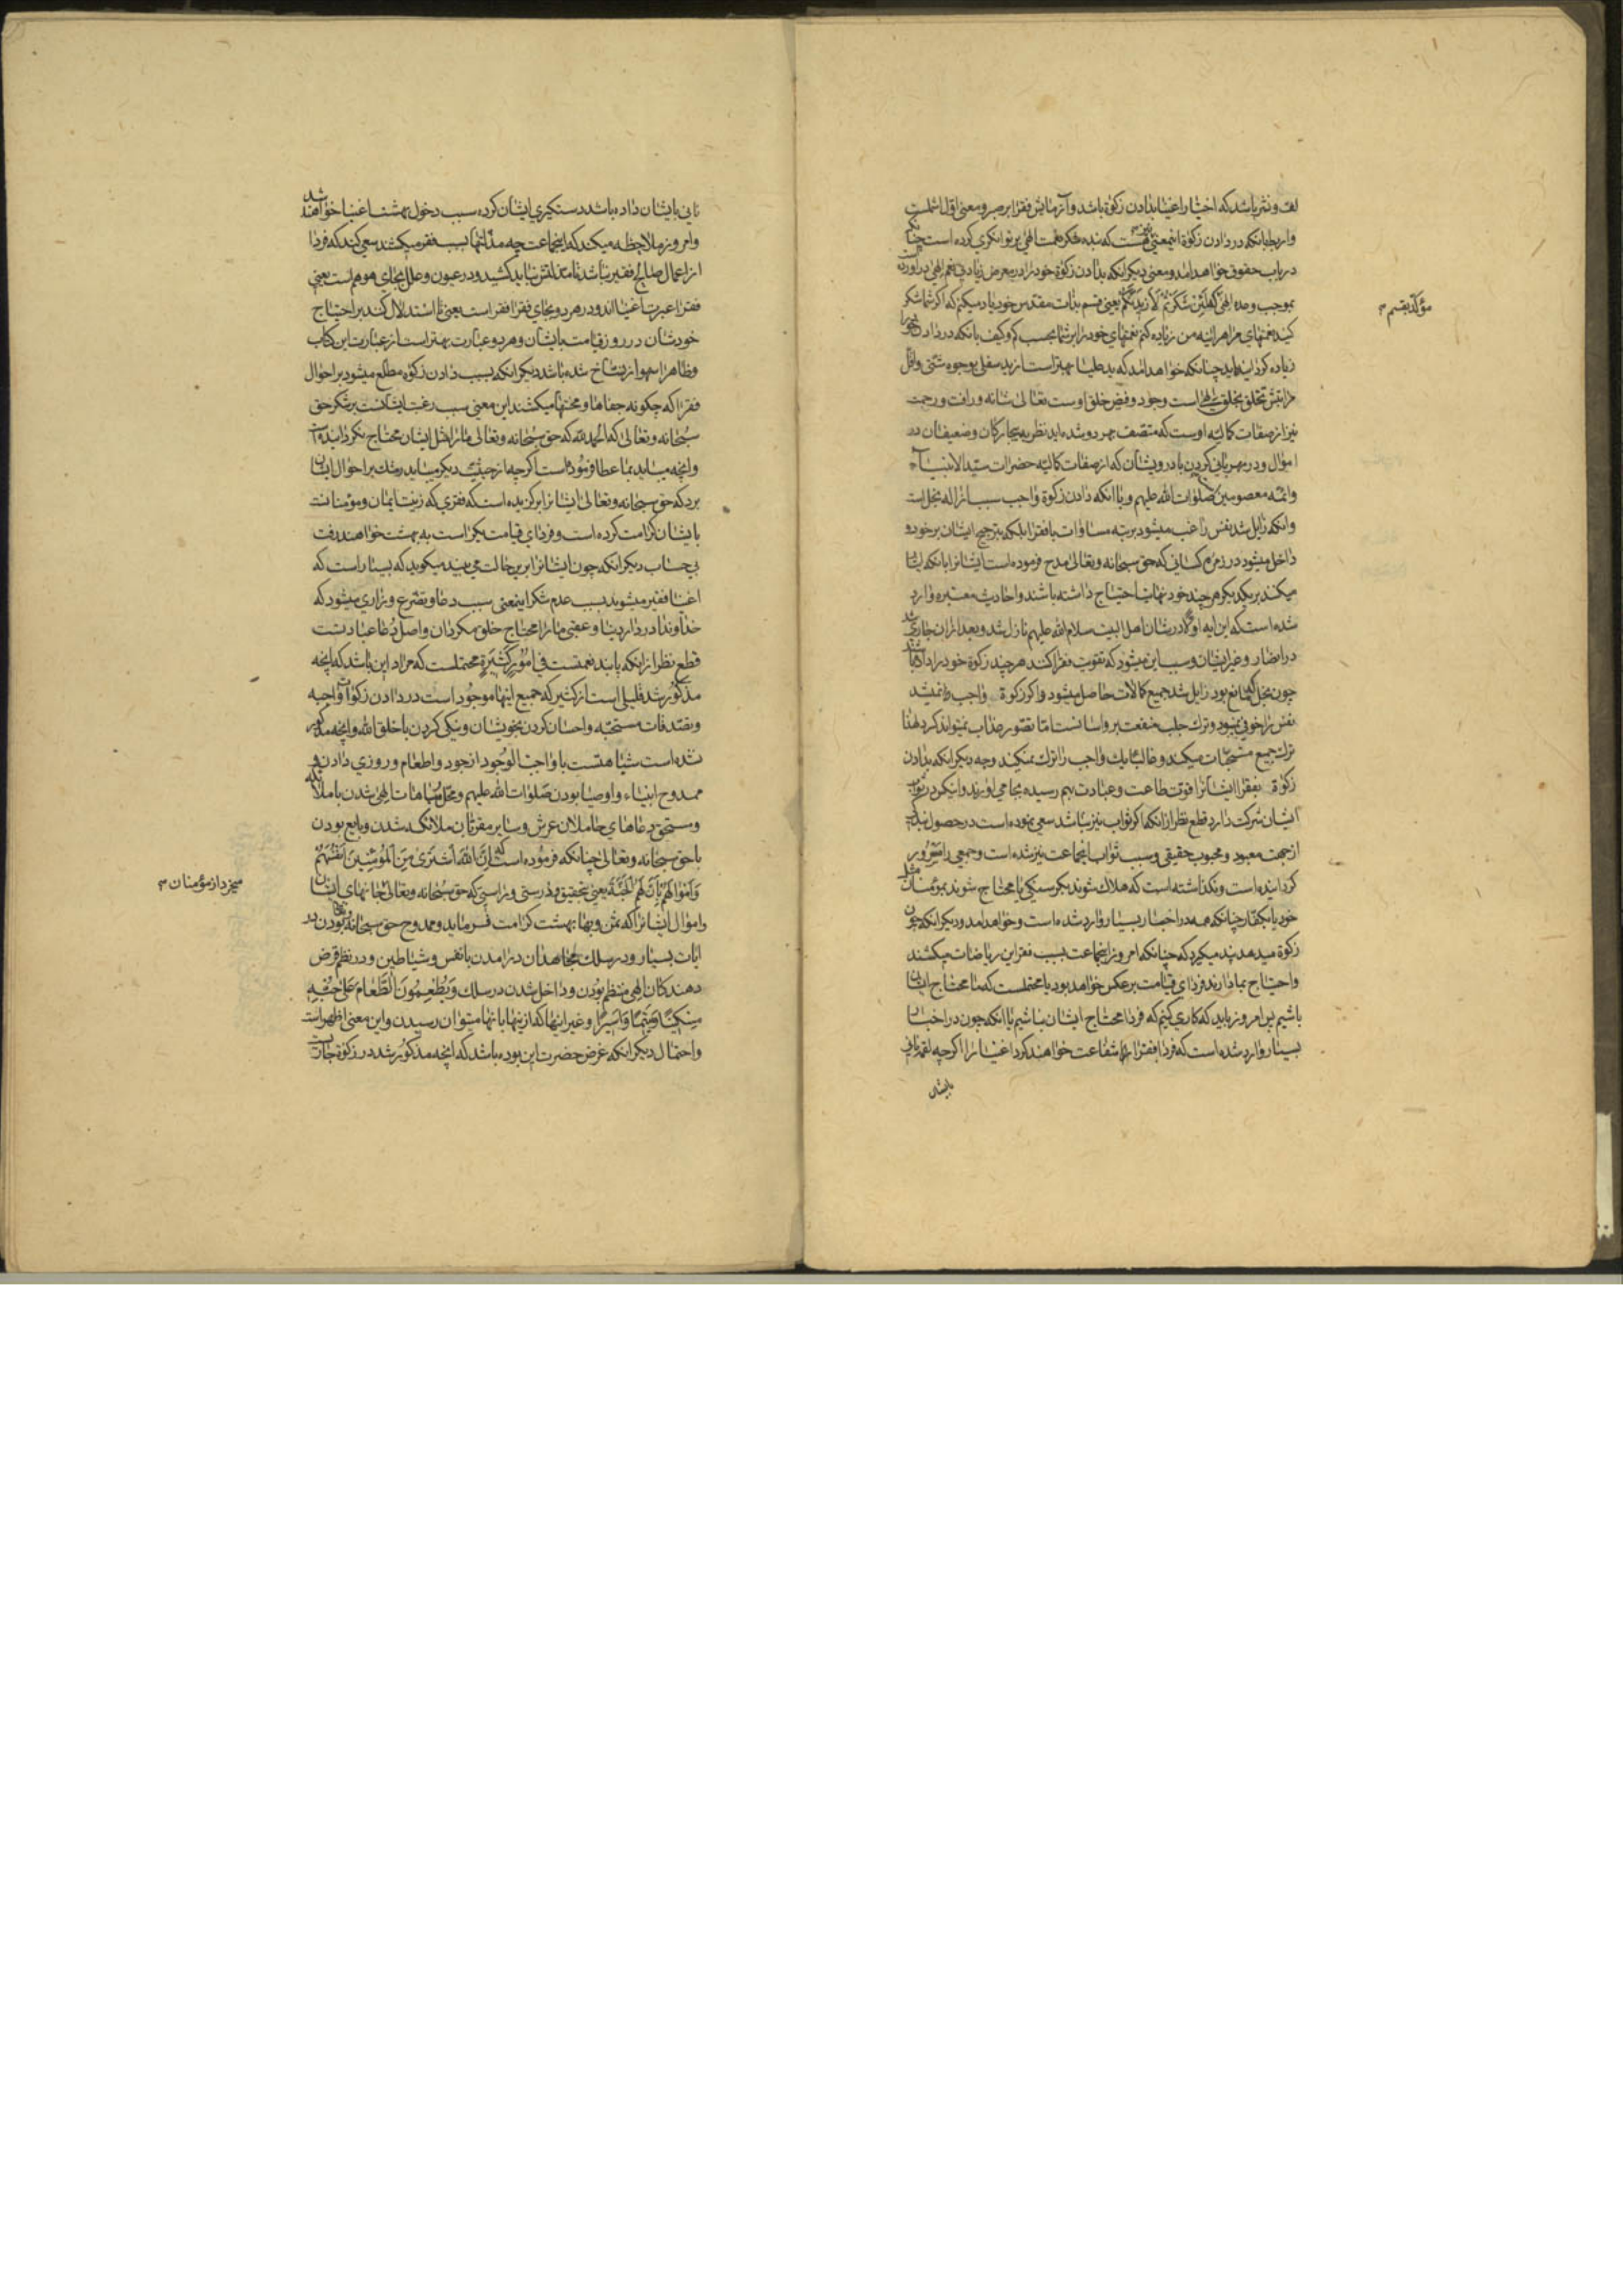 لف و نشر باشد که اختبار اغنیا بدادن زکوة باشد و آزمایش فقرا بر صبر و معنی اول اشملست
و اربط بانکه در دادن زکوة اینمعنی نیز هست که بنده شکر نعمت الهی بر توانکری کرده است چنانکه
در باب حقوق خواهد امد و معنی دیکر انکه بدادن زکوة خود را در معرض زیادتی نعم الهی دراورده است
بموجب وعده الهی که لَئِن شَکَرتُم لَاَزیدَنَّکُم یعنی قسم بذات مقدس خود یاد میکنم که اکر شما شکر
مؤکد بقسم
کنید نعمتهای مرا هراینه من زیاده کنم نعمتهای خود را بر شما بحسب کم و کیف بانکه در دادن خود را
زیاده کردانیده اید چنانکه خواهد امد که ید علیا بهتر است از ید سفلی بوجوه شتی و اقل
مراتبش تخلق بخلق الهی است وجود و فیض خلق اوست تعالی شانه و رافت و رحمت
نیز از صفات کمالیه اوست که متصف بهر دو شده اید نظر به بیچارکان و ضعیفان در
اموال و در مهربانی کردن با درویشان که از صفات کمالیه حضرات سید الانبیا
و ائمه معصومین صلوات الله علیهم و یا انکه دادن زکوة واجب سبب ازاله بخل است
و انکه زایل شد نفس راغب میشود برتبه مساوات با فقرا بلکه بترجیح ایشان بر خود و
داخل میشود در زمره کسانی که حق سبحانه و تعالی مدح فرموده است ایشانرا بانکه ایثار
میکنند بر یکدیکر هر چند خود نهایت احتیاج داشته باشند و احادیث معتبره وارد
شده است که این ایه اولا در شان اهل البیت سلام الله علیهم نازل شد و بعد ازان جاری شد
در انصار و غیر ایشان و سبب این میشود که تقویت فقرا کنند هر چند زکوة خود را داده باشند
چون بخل که مانع بود زایل شد جمیع کمالات حاصل میشود و اکر زکوة واجب را نمیشد
نفس را خوفی نمیبود و ترک جلب منفعت بر او اسانست اما تصور عذاب نمیتواند کرد لهذا
ترک جمیع مستحبات میکند و غالبا یک واجب را ترک نمیکند وجه دیکر انکه بدادن
زکوة بفقرا ایشانرا قوت طاعت و عبادت بهم رسیده بجا می اورند و اینکس در ثواب
ایشان شرکت دارد قطع نظر از انکه اکر ثواب نیز نباشد سعی نموده است در حصول بندکی
از جهت معبود و محبوب حقیقی و سبب ثواب انجماعت نیز شده است و جمعی را مسرور
کردانیده است و نکذاشته است که هلاک شوند بکرسنکی یا محتاج شوند بمؤمنان مثل
خود یا بکفار چنانکه همه در اخبار بسیار وارد شده است و خواهد امد و دیکر انکه چون
زکوة میدهد پند میکیرد که چنانکه امروز اینجماعت بسبب فقر این ریاضات میکشند
و احتیاج بما دارند فردای قیامت برعکس خواهد بود یا محتملست که ما محتاج ایشان
باشیم پس امروز باید که کاری کنیم که فردا محتاج ایشان نباشیم یا انکه چون در اخبار
بسیار وارد شده است که فردا فقرا شفاعت خواهند کرد اغنیا را اکر چه لقمه نانی
بایشان
نانی بایشان داده باشد دستکیری ایشان کرده سبب دخول بهشت اغنیا خواهند شد
و امروز ملاحظه میکند که اینجماعت چه مذلتها بسبب فقر میکشند سعی کند که فردا
از اعمال صالح فقیر نباشد تا مذلتش نباید کشید و در عیون و علل بجای هو هم است یعنی
فقرا عبرت اغنیا اند و در هر دو بجای فقرا فقر است یعنی تا استدلال کنند بر احتیاج
خودشان در روز قیامت بایشان و هر دو عبارت بهتر است از عبارت این کتاب
و ظاهرا سهو از نساخ شده باشد دیکر انکه بسبب دادن زکوة مطلع میشود بر احوال
فقرا که چکونه جفاها و محنتها میکشند این معنی سبب رغبت ایشانست بر شکر حق
سبحانه و تعالی که الحمد لله که حق سبحانه و تعالی ما را مثل ایشان محتاج نکردانیده است
و انچه میباید بما عطا فرموده است اکر چه از حیثیت دیکر میباید رشک بر احوال ایشان
برد که حق سبحانه و تعالی ایشانرا برکزیده است که فقری که زینت ایمان و مؤمنانست
بایشان کرامت کرده است و فردای قیامت یکراست به بهشت خواهند رفت
بی حساب دیکر انکه چون ایشانرا برین حالت می بیند میکوید که بسیار است که
اغنیا فقیر میشوند بسبب عدم شکر اینمعنی سبب دعا و تضرع و زاری میشود که
خداوندا در دار دنیا و عقبی ما را محتاج خلق مکردان و اصل دعا عبادتست
قطع نظر از اینکه پابند نعمتست فی اُمُورٍ کَثیرَةٍ محتملست که مراد این باشد که انچه
مذکور شد قلیلی است از کثیر که جمیع اینها موجود است در دادن زکوات واجبه
و تصدقات مستحبه و احسان کردن بخویشان و نیکی کردن با خلق الله و انچه مذکور
شده است شباهتست با واجب الوجود از جود و اطعام و روزی دادن و
ممدوح انبیاء و اوصیا بودن صلوات الله علیهم و محل مباهات الهی شدن با ملائکه
و مستحق دعاهای حاملان عرش و سایر مقربان ملائکه شدن و بایع بودن
با حق سبحانه و تعالی چنانکه فرموده است که اِنَّ اللهَ اشْتَری مِنَ المُؤمِنینَ اَنفُسَهُم
وَاَموالَهُم بِاَنَّ لَهُمُ الجَنَّةَ یعنی بتحقیق و درستی و راستی که حق سبحانه و تعالی جانهای ایشان
میخرد از مؤمنان
و اموال ایشانرا که بثمن و بهاء بهشت کرامت فرماید و ممدوح حق سبحانه و تعالی بودن در
ایات بسیار و در سلک مجاهدان درامدن با نفس و شیاطین و در نظم قرض
دهندکان الهی منتظم بودن و داخل شدن در سلک وَیُطعِمُونَ الطَّعامَ عَلی حُبِّهِ
مِسکیناً وَیَتیماً وَاَسیراً و غیر اینها که ازینها بانها میتوان رسیدن و این معنی اظهر است
و احتمال دیکر انکه غرض حضرت این بوده باشد که انچه مذکور شد در زکوة جاریست